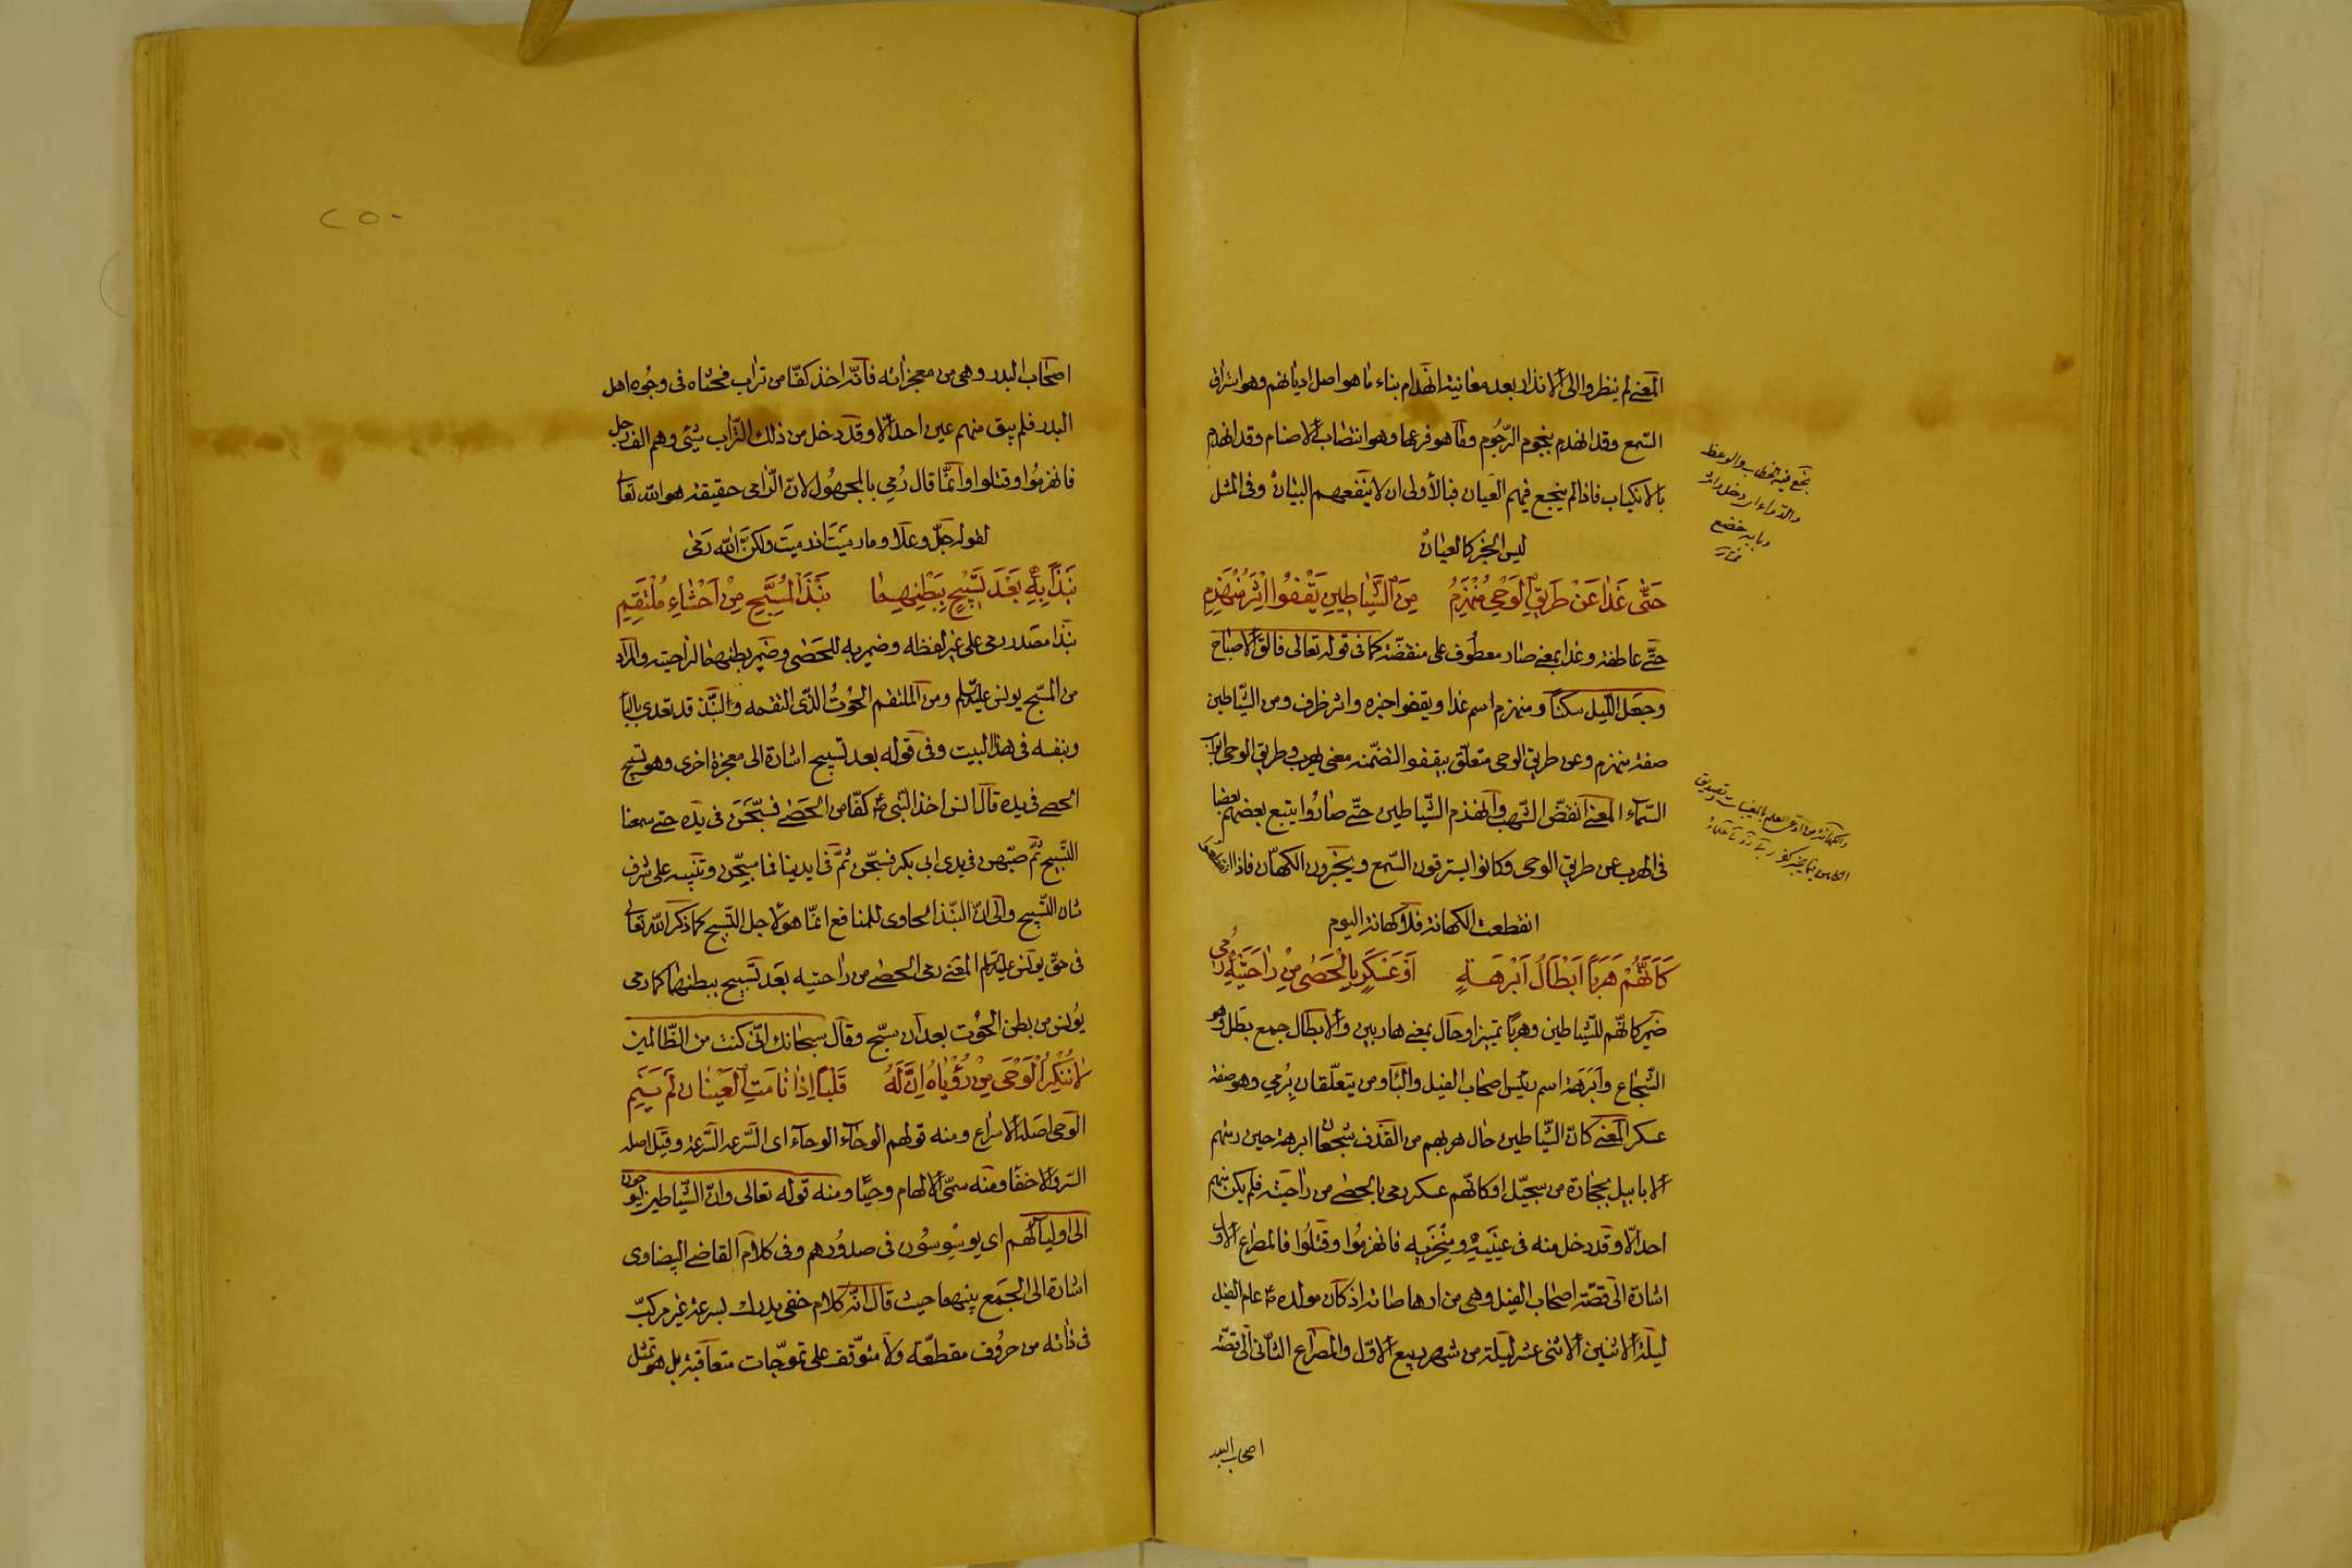 المعنى لم ينظروا الى الانذار بعد معاينة انهدام بناء ما هو اصل اديانهم وهو استراق
السمع وقد انهدم بنجوم الرجوم وما هو فرعها وهو انتصاب الاصنام وقد انهدم
بالانكباب فاذا لم ينجع فيهم العيان فبالاولى ان لا ينفعهم البيان وفى المثل
ليس الخبر كالعيان
حَتّى غَدا عَنْ طَريقِ الوَحْىِ مُنْهَزِمٌ مِنَ الشَّياطينِ يَقْفُوا اِثْرَ مُنْهَزِمِ
حتّى عاطفة وغدا بمعنى صار معطوف على منقضّة كما فى قوله تعالى فالق الاصباح
وجعل اللّيل سكناً ومنهزم اسم غدا ويقفو اخبره واثر ظرف ومن الشّياطين
صفة منهزم وعن طريق الوحى متعلّق بيقفو التضمّنه معنى يهرب وطريق الوحى ابواب
السّماء المعنى انقضّ الشّهب وانهزم الشّياطين حتّى صاروا يتبع بعضهم بعضا
فى الهرب عن طريق الوحى وكانوا يسترقون السّمع ويخبرون الكهّان فاذا انقطعوا
انقطعت الكهانة فلا كهانة اليوم
كَاَنَّهُمْ هَرَباً اَبْطالُ اَبْرَهَةٍ اَوْ عَسْكَرٍ بِالْحَصى مِنْ راحَتَيْهِ رُمِى
ضمير كانّهم للشّياطين وهرباً تميز او حال بمعنى هاربين والابطال جمع بطل وهو
الشّجاع وابرهة اسم رئيس اصحاب الفيل والباء ومن يتعلّقان برُمي وهو صفة
عسكر المعنى كانّ الشّياطين حال هربهم من القذف شجعان ابرهة حين رمتهم
الابابيل بحجارة من سجّيل او كانّهم عسكر رمى بالحصى من راحتيه فلم يكن منهم
احد الّا وقد دخل منه فى عينيه ومنخريه فانهزموا وقتلوا فالمصراع الاول
اشارة الى قصّة اصحاب الفيل وهى من ارهاصاته اذ كان مولده ص عام الفيل
ليلة الاثنين الاثنى عشر ليلة من شهر ربيع الاوّل والمصراع الثّانى الى قصّة
اصحاب البدر
اصحاب البدر وهى من معجزاته فانّه اخذ كفّا من تراب فحثاه فى وجوه اهل
البدر فلم يبق منهم عين احد الّا وقد دخل من ذلك التّراب شيئ وهم الف رجل
فانهزموا وقتلوا وانّما قال رُمي بالمجهول لانّ الرّامى حقيقة هو الله تعالى
لقوله جلّ وعلا وما رميت اذ رميت ولكنّ الله رمى
نَبْذاً بِهِ بَعْدَ تَسْبيحٍ بِبَطْنِهِما نَبْذَ المُسَبِّحِ مِنْ اَحْشاءِ مُلْتَقِمِ
نبذا مصدر رمى على غير لفظه وضمير به للحصى وضمير بطنهما لراحتيه والمراد
من المسبّح يونس عليه السلم ومن الملتقم الحوت الذّى التقمه والنّبذ قد تعدى بالباء
وبنفسه فى هذا البيت وفى قوله بعد تسبيح اشارة الى معجزة اخرى وهو تسبيح
الحصى فى يده قال انس اخذ النّبى ص كفّا من الحصى فسبّحن فى يده حتى سمعنا
التّسبيح ثمّ صبّهن فى يدى ابى بكر فسبّحن ثمّ فى ايدينا فما سبّحن وتنبيه على شرف
شان التّسبيح والى انّ النّبذ الحاوى للمنافع انّما هو لاجل التّسبيح كما ذكر الله تعالى
فى حقّ يونس عليه السلم المعنى رمى الحصى من راحتيه بعد تسبيح ببطنهما كما رمى
يونس من بطن الحوت بعد ان سبّح وقال سبحانك انّى كنت من الظّالمين
لا تُنْكِرِ الْوَحْىَ مِنْ رُؤْياهُ اِنَّ لَهُ قَلْباً اِذا نامَتِ الْعَيْنانِ لَمْ يَنَمِ
الوحى اصله الاسراع ومنه قولهم الوحاء الوحاء اى السّرعة السّرعة وقيل اصله
السّر والاخفاء ومنه سمّى الالهام وحياً ومنه قوله تعالى وانّ الشّياطين ليوحون
الى اوليائهم اى يوسوسون فى صدورهم وفى كلام القاضى البيضاوى
اشارة الى الجمع بينهما حيث قال انّه كلام خفى يدرك بسرعة غير مركّب
فى ذاته من حروف مقطعّة ولا متوقّف على تموّجات متعاقبة بل هو تمثل
٢٥٠